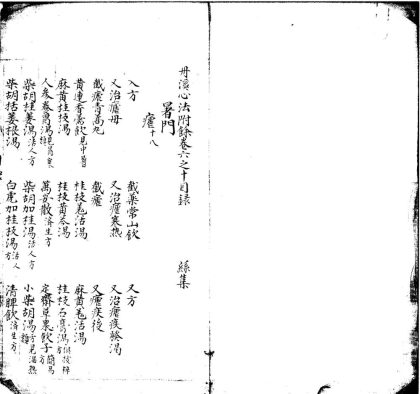 丹溪心法附餘卷六之十目錄
暑門
瘧十八
絲集
入方 截藥常山飲 又方
又治瘧母 又治瘧寒熱 又治瘧痰發渴
截瘧青蒿丸 截瘧 又瘧疾後
黃連香薷飲見中暑 桂枝羌活湯 麻黃羌活湯
麻黃桂枝湯 桂枝黃芩湯 桂枝石膏湯
人參養胃湯 萬安散濟生方 定齋草果飲子簡易方
柴胡桂薑湯活人方 柴胡加桂湯活人方 小柴胡湯
柴胡栝蔞根湯 白虎加桂枝湯活人方 清脾飲濟生方